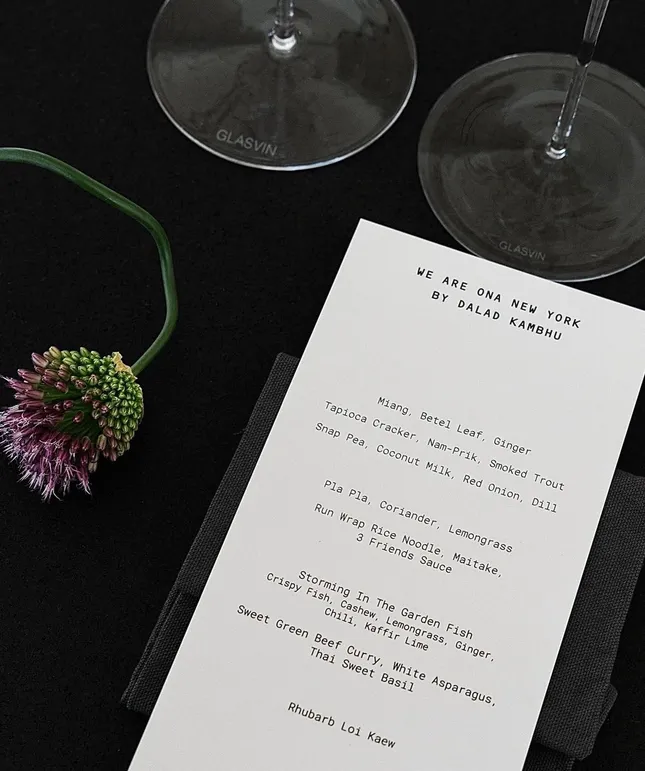 GLASVIN
GLASVIN
WE ARE ONA NEW YORK
BY DALAD KAMBHU
Miang, Betel Leaf, Ginger
Tapioca Cracker, Nam-Prik, Smoked Trout
Snap Pea, Coconut Milk, Red Onion, Dill
Pla Pla, Coriander, Lemongrass
Run Wrap Rice Noodle, Maitake,
3 Friends Sauce
Storming In The Garden Fish
Crispy Fish, Cashew, Lemongrass, Ginger,
Chili, Kaffir Lime
Sweet Green Beef Curry, White Asparagus,
Thai Sweet Basil
Rhubarb Loi Kaew